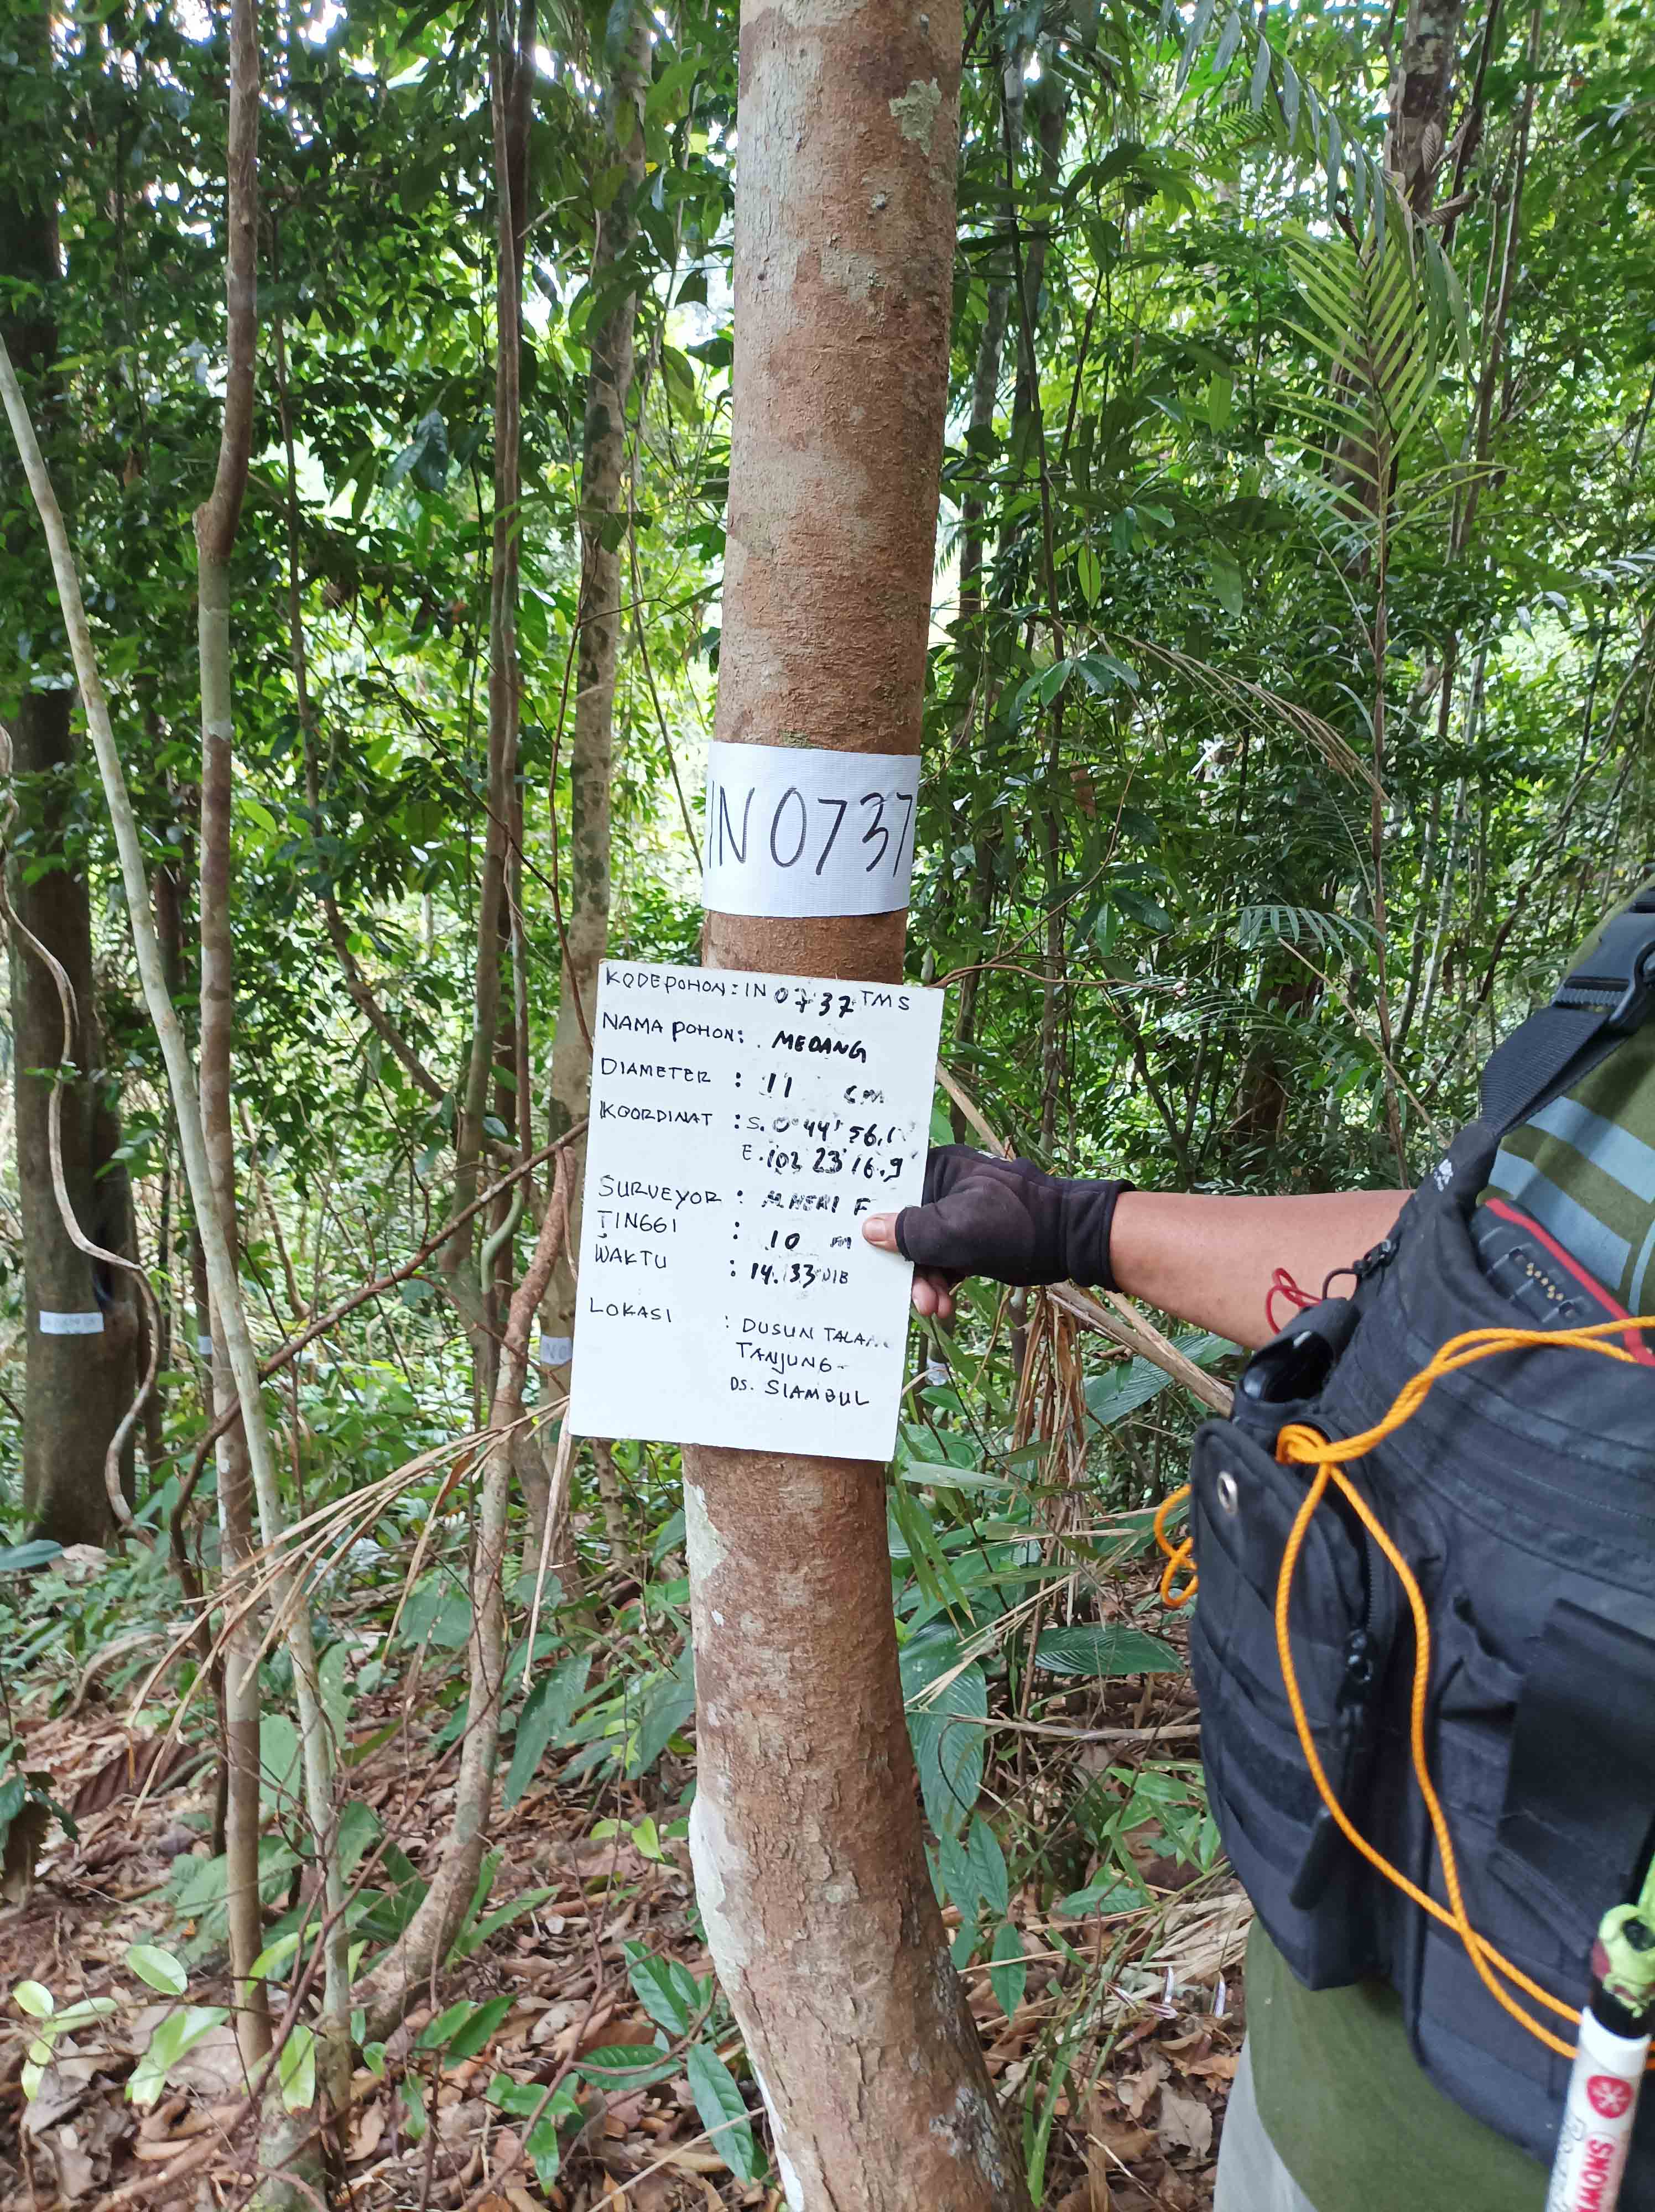 IN 0737
KODE POHON: IN 0737 TMS
NAMA POHON: MEDANG
DIAMETER : 11 CM
KOORDINAT : S. 0° 44' 56.1"
E. 102 23' 16.9
SURVEYOR : M. HERI F
TINGGI : 10 m
WAKTU : 14.33 WIB
LOKASI : DUSUN
TANJUNG
DS. SIAMBUL
SNOWMAN